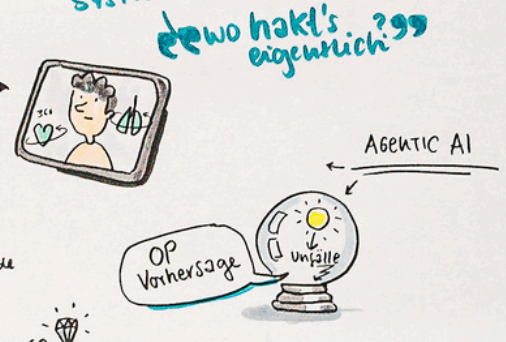 „wo hakt's
eigentlich?"
360
AGENTIC AI
OP
Vorhersage
Unfälle